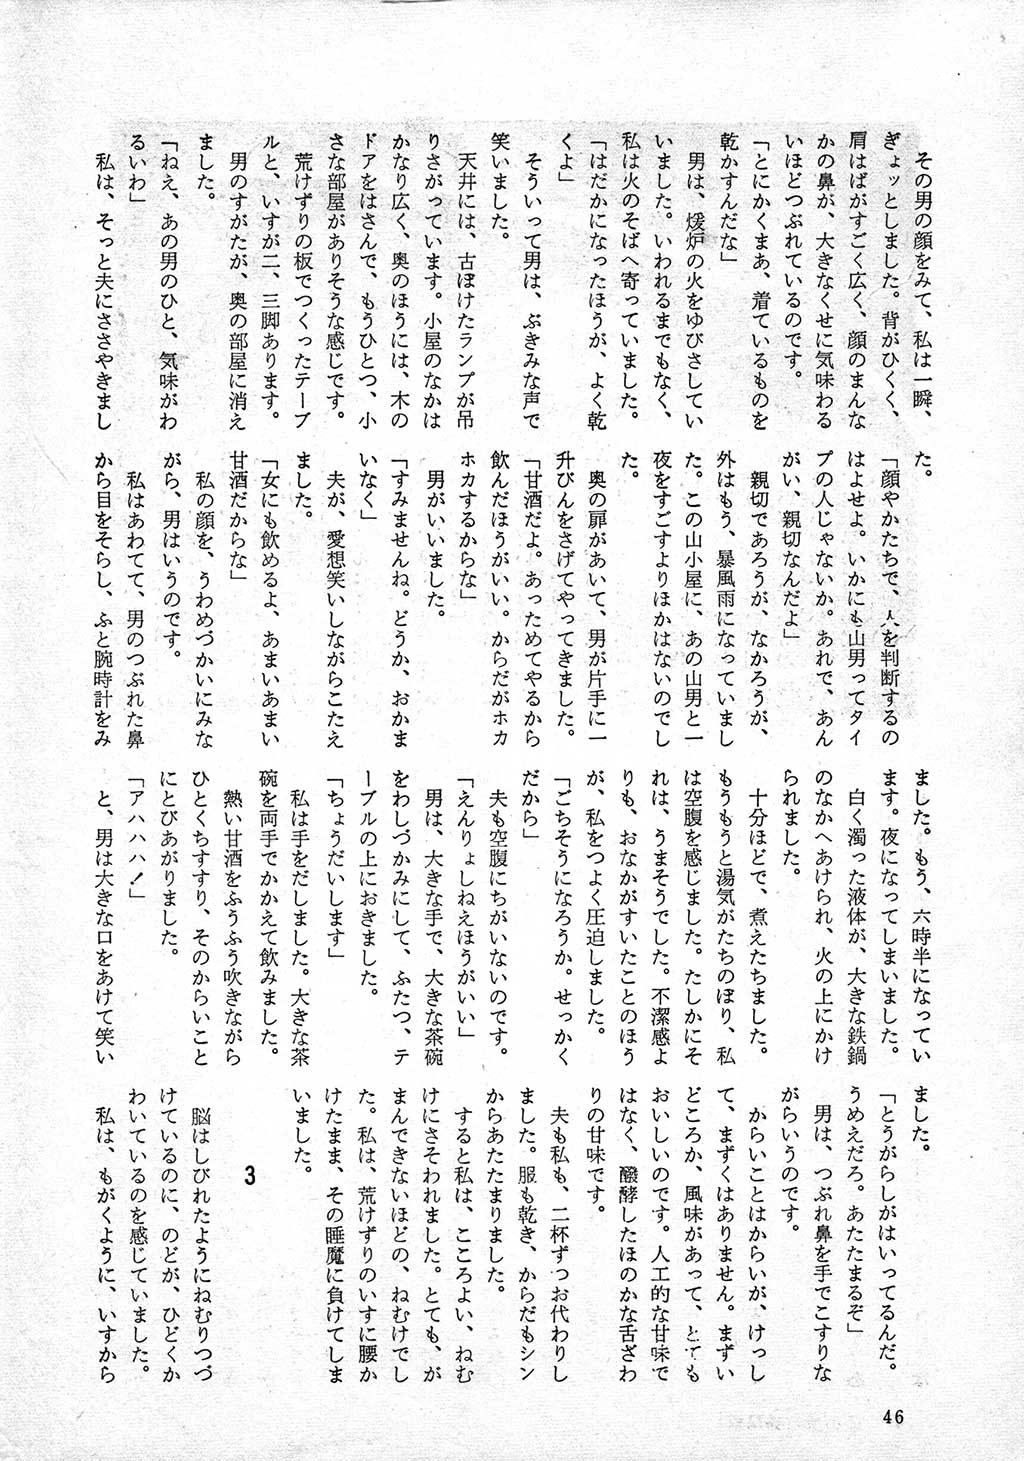 その男の顔をみて、私は一瞬、
ぎょッとしました。背がひくく、
肩はばがすごく広く、顔のまんな
かの鼻が、大きなくせに気味わる
いほどつぶれているのです。
「とにかくまあ、着ているものを
乾かすんだな」
男は、煖炉の火をゆびさしてい
いました。いわれるまでもなく、
私は火のそばへ寄っていました。
「はだかになったほうが、よく乾
くよ」
そういって男は、ぶきみな声で
笑いました。
天井には、古ぼけたランプが吊
りさがっています。小屋のなかは
かなり広く、奥のほうには、木の
ドアをはさんで、もうひとつ、小
さな部屋がありそうな感じです。
荒けずりの板でつくったテーブ
ルと、いすが二、三脚あります。
男のすがたが、奥の部屋に消え
ました。
「ねえ、あの男のひと、気味がわ
るいわ」
私は、そっと夫にささやきまし
た。
「顔やかたちで、人を判断するの
はよせよ。いかにも山男ってタイ
プの人じゃないか。あれで、あん
がい、親切なんだよ」
親切であろうが、なかろうが、
外はもう、暴風雨になっていまし
た。この山小屋に、あの山男と一
夜をすごすよりほかはないのでし
た。
奥の扉があいて、男が片手に一
升びんをさげてやってきました。
「甘酒だよ。あっためてやるから
飲んだほうがいい。からだがホカ
ホカするからな」
男がいいました。
「すみませんね。どうか、おかま
いなく」
夫が、愛想笑いしながらこたえ
ました。
「女にも飲めるよ、あまいあまい
甘酒だからな」
私の顔を、うわめづかいにみな
がら、男はいうのです。
私はあわてて、男のつぶれた鼻
から目をそらし、ふと腕時計をみ
ました。もう、六時半になってい
ます。夜になってしまいました。
白く濁った液体が、大きな鉄鍋
のなかへあけられ、火の上にかけ
られました。
十分ほどで、煮えたちました。
もうもうと湯気がたちのぼり、私
は空腹を感じました。たしかにそ
れは、うまそうでした。不潔感よ
りも、おなかがすいたことのほう
が、私をつよく圧迫しました。
「ごちそうになろうか。せっかく
だから」
夫も空腹にちがいないのです。
「えんりょしねえほうがいい」
男は、大きな手で、大きな茶碗
をわしづかみにして、ふたつ、テ
ーブルの上におきました。
「ちょうだいします」
私は手をだしました。大きな茶
碗を両手でかかえて飲みました。
熱い甘酒をふうふう吹きながら
ひとくちすすり、そのからいこと
にとびあがりました。
「アハハハ！」
と、男は大きな口をあけて笑い
ました。
「とうがらしがはいってるんだ。
うめえだろ。あたたまるぞ」
男は、つぶれ鼻を手でこすりな
がらいうのです。
からいことはからいが、けっし
て、まずくはありません。まずい
どころか、風味があって、とても
おいしいのです。人工的な甘味で
はなく、醱酵したほのかな舌ざわ
りの甘味です。
夫も私も、二杯ずつお代わりし
ました。服も乾き、からだもシン
からあたたまりました。
すると私は、こころよい、ねむ
けにさそわれました。とても、が
まんできないほどの、ねむけでし
た。私は、荒けずりのいすに腰か
けたまま、その睡魔に負けてしま
いました。
3
脳はしびれたようにねむりつづ
けているのに、のどが、ひどくか
わいているのを感じていました。
私は、もがくように、いすから
46